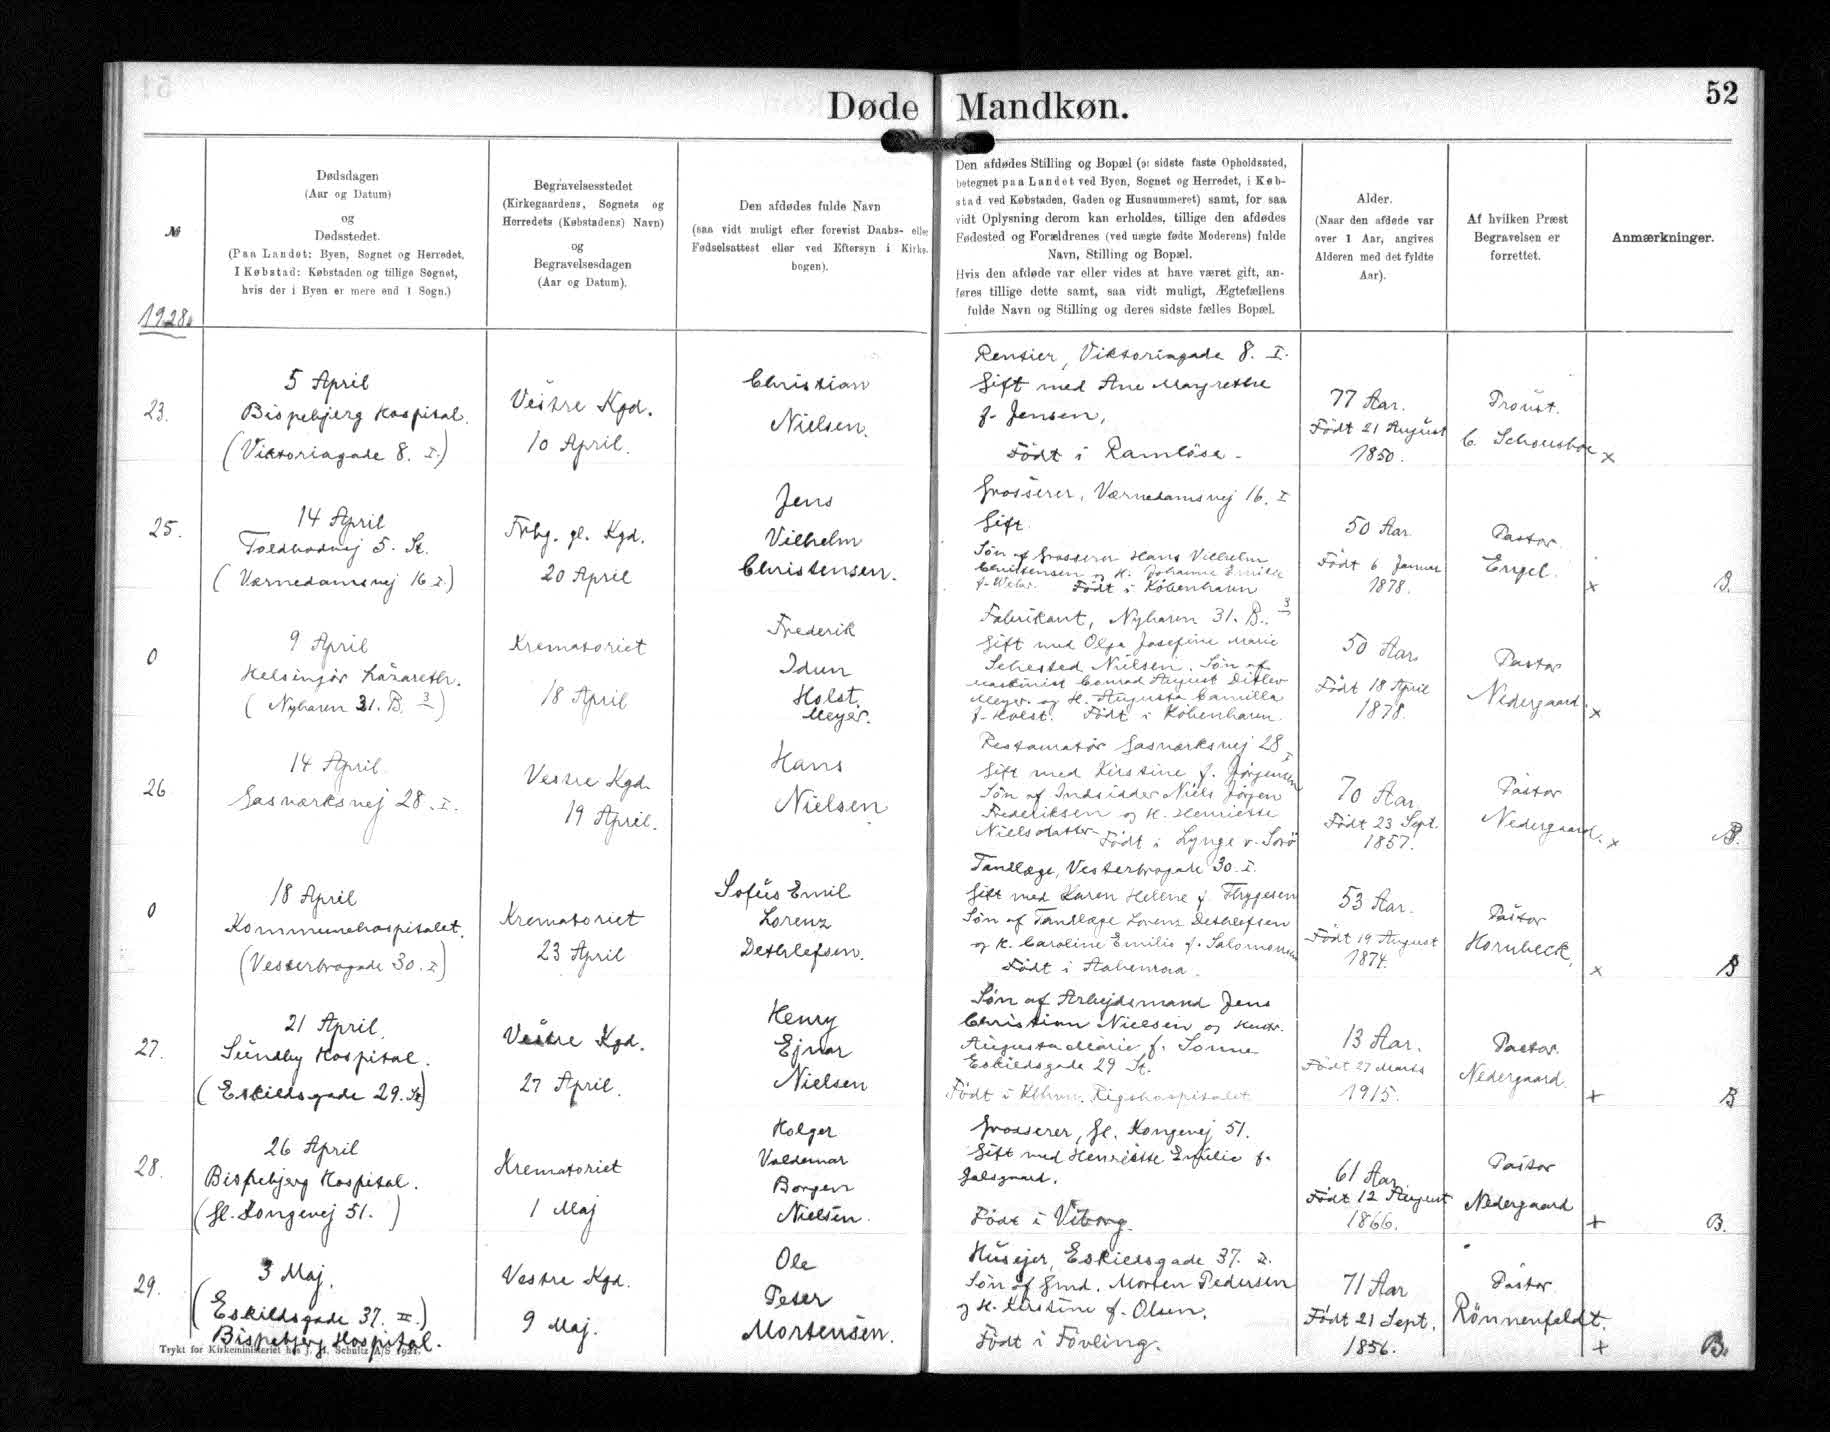 52
Døde Mandkøn.
№
1928.
Dødsdagen
(Aar og Datum)
og
Dødsstedet.
(Paa Landet: Byen, Sognet og Herredet,
I Købstad: Købstaden og tillige Sognet,
hvis der i Byen er mere end 1 Sogn.)
Begravelsesstedet
(Kirkegaardens, Sognets og
Herredets (Købstadens) Navn)
og
Begravelsesdagen
(Aar og Datum).
Den afdødes fulde Navn
(saa vidt muligt efter forevist Daabs- eller
Fødselsattest eller ved Eftersyn i Kirke-
bogen).
Den afdødes Stilling og Bopæl (ɔ: sidste faste Opholdssted,
betegnet paa Landet ved Byen, Sognet og Herredet, i Køb-
stad ved Købstaden, Gaden og Husnummeret) samt, for saa
vidt Oplysning derom kan erholdes, tillige den afdødes
Fødested og Forældrenes (ved uægte fødte Moderens) fulde
Navn, Stilling og Bopæl.
Hvis den afdøde var eller vides at have været gift, an-
føres tillige dette samt, saa vidt muligt, Ægtefællens
fulde Navn og Stilling og deres sidste fælles Bopæl.
Alder.
(Naar den afdøde var
over 1 Aar, angives
Alderen med det fyldte
Aar).
Af hvilken Præst
Begravelsen er
forrettet.
Anmærkninger.
23.
5 April
Bispebjerg Hospital.
(Viktoriagade 8. I.)
Vestre Kgd.
10 April.
Christian
Nielsen.
Rentier, Viktoriagade 8. I.
Gift med Ane Margrethe
f. Jensen,
Født i Ramløse.
77 Aar.
Født 21 August
1850.
Provst.
C. Schousboe
x
25.
14 April
Toldbodvej 5. St.
(Værnedamsvej 16 I.)
Frbg. gl. Kgd.
20 April
Jens
Vilhelm
Christensen.
Grosserer, Værnedamsvej 16. I
Gift.
Søn af Grosserer Hans Vilhelm
Christensen og H. Johanne Emilie
Født i København
50 Aar
Født 6 Januar
1878.
Pastor
Engel.
x
B.
0
9 April
Helsingør Lazareth.
(Nyhavn 31. B. 3)
Krematoriet
18 April
Frederik
Idun
Holst
Meyer.
Fabrikant, Nyhavn 31. B. 3
Gift med Olga Josefine Marie
Sehested Nielsen. Søn af
Maskinist Conrad August Ditlev
Meyer og H. Augusta Camilla
f. Holst. Født i København.
50 Aar
Født 18 April
1878.
Pastor
Nedergaard.
x
26
14 April
Gasværksvej 28. I.
Vestre Kgd.
19 April.
Hans
Nielsen
Restauratør Gasværksvej 28 I
Gift med Kirstine f. Jørgensen
Søn af Indsidder Niels Jørgen
Frederiksen og H. Henriette
Nielsdatter Født i Lynge v. Sorø
70 Aar
Født 23 Sept.
1857.
Pastor
Nedergaard.
x
B.
0
18 April
Kommunehospitalet.
(Vesterbrogade 30. I)
Krematoriet
23 April
Sofus Emil
Lorenz
Dethlefsen.
Tandlæge, Vesterbrogade 30. I.
Gift med Karen Helene f. Thygesen
Søn af Tandlæge Lorenz Dethlefsen
og H. Caroline Emilie f. Salomonsen
Født i Aabenraa.
53 Aar.
Født 19 August
1874.
Pastor
Hornbeck,
x
B
27.
21 April.
Sundby Hospital.
(Eskildsgade 29. St)
Vestre Kgd.
27 April.
Henry
Ejnar
Nielsen
Søn af Arbejdsmand Jens
Christian Nielsen og Hustr.
Augusta Marie f. Sonne
Eskildsgade 29 St.
Født i Kbhvn. Rigshospitalet
13 Aar.
Født 27 Marts
1915.
Pastor
Nedergaard.
+
B
28.
26 April
Bispebjerg Hospital.
(Gl. Kongevej 51.)
Krematoriet
1 Maj
Holger
Valdemar
Borgen
Nielsen.
Grosserer, Gl. Kongevej 51.
Gift med Henriette Emilie f.
Født i Viborg.
61 Aar
Født 12 August
1866.
Pastor
Nedergaard
+
B.
29.
3 Maj.
(Eskildsgade 37. II.)
Bispebjerg Hospital.
Vestre Kgd.
9 Maj.
Ole
Peter
Mortensen.
Husejer, Eskildsgade 37. II.
Søn af Gmd. Morten Pedersen
og H. Kirstine f. Olsen.
Født i Føvling.
71 Aar
Født 21 Sept.
1856.
Pastor
Rönnenfeldt.
+
B.
Trykt for Kirkeministeriet hos J. H. Schultz A/S 1921.